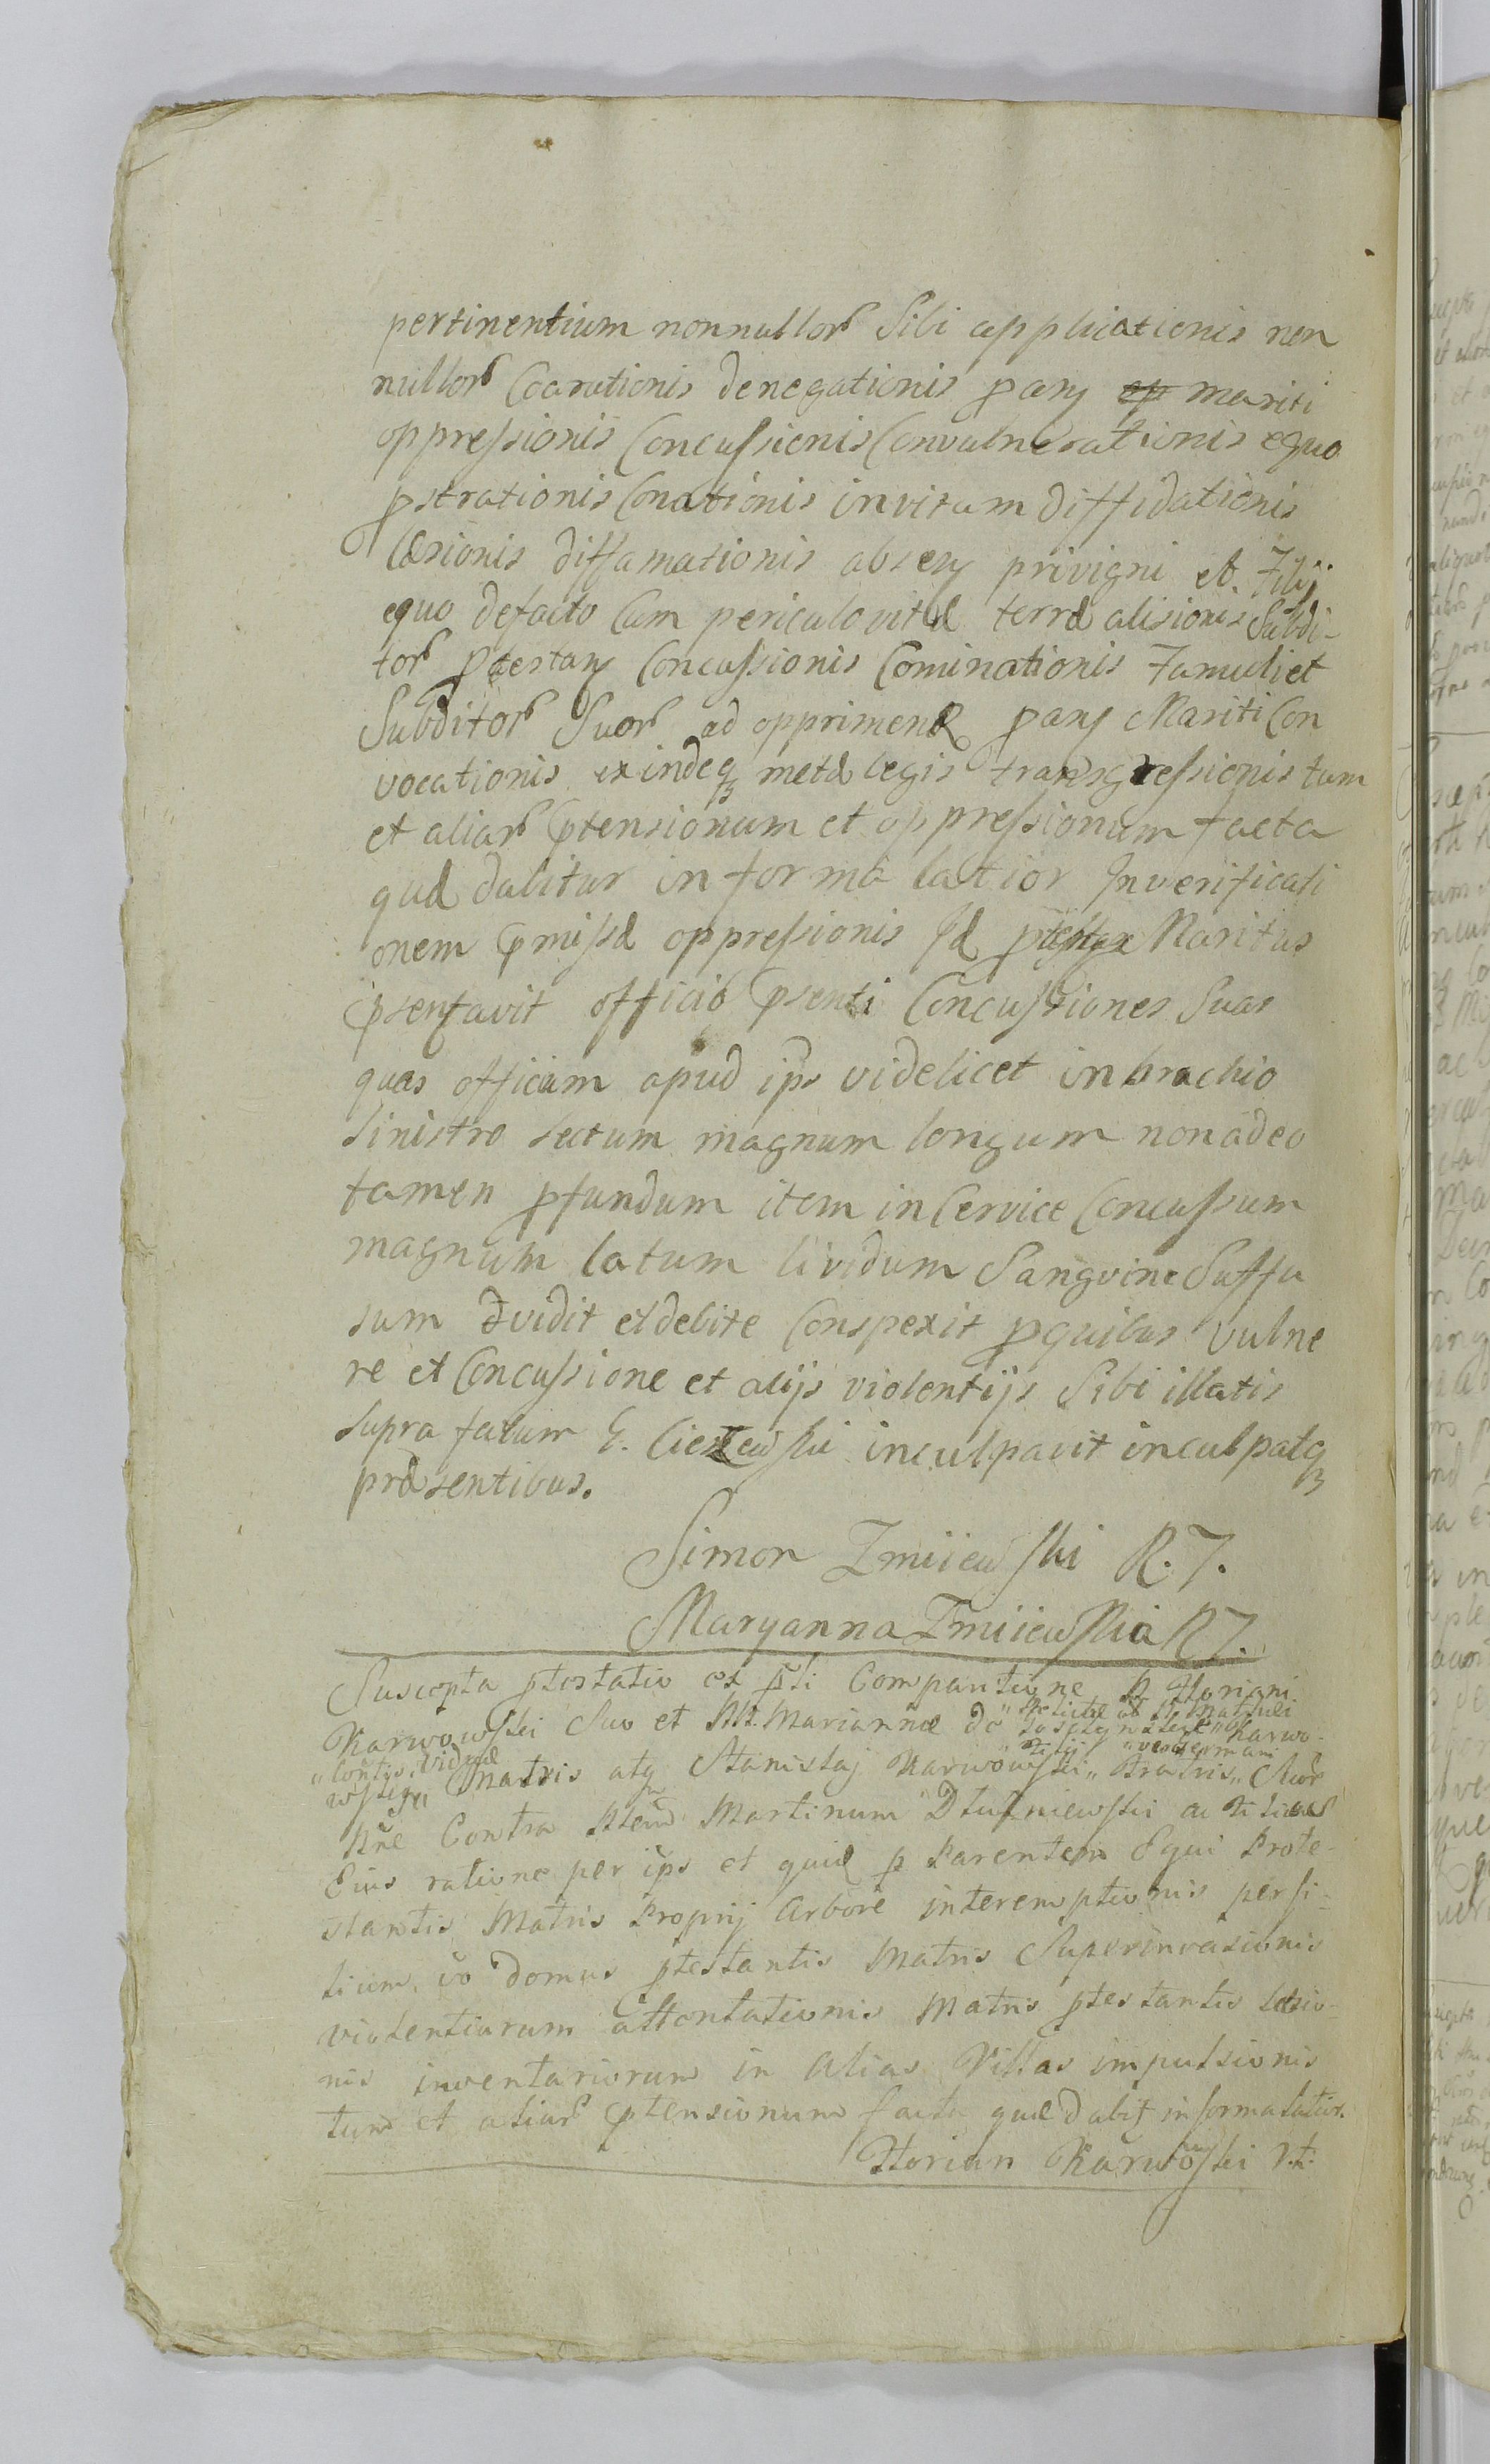 pertinentium nonnullor Sibi applicationis non
nullor Coarationis denegationis pany mariti
oppressionis Concussionis Convulnerationis equo
pstrationis Conationis invitam diffidationis
læsionis diffamationis absen privigni et Filij
equo defacto Cum periculo vitæ terræ alisionis Subdi-
tor ptestan Concussionis Cominationis Famuli et
Subditor Suor ad opprimen pany Mariti Con
vocationis exindeq metæ legis transgressionis tum
et aliar ptensionum et oppressionum facta
quæ dabitur in forma latior In verificati
onem pmissæ oppressionis Id Maritus
psentavit officio psenti Concussiones Suas
quas officium apud ips videlicet in brachio
sinistro sectum magnum longum non adeo
tamen pfundum item in Cervice Concussum
magnum latum lividum Sangvine Suffu
sum vidit et debite Conspexit p quibus vulne
re et Concussione et alijs violentijs Sibi illatis
supra fatum G. inculpavit inculpatq
præsentibus.
Simon Zmiiewski R. J.
Maryanna Zmiiewska R J.
Suscepta ptestatio ex pti Comparitione N. Floriani
Karwowski Suo et M. Mariannæ de Karwo-
wska Matris atq Stanislai Karwowski Fratris Suor
Nne Contra Martinum Dłużniewski ac Filium
Eius ratione per ips et quid p Parentem Equi Prote-
stantis Matris Proprij Arbore interemptionis persi-
tium, vo domus ptestantis Matris Superinvasionis
violentiarum attentationis Matris ptestantis læsio-
nis inventariorum in alias Villas impulsionis
tum et aliar ptensionum facta quæ dabit in forma latior.
Florian Karwowski